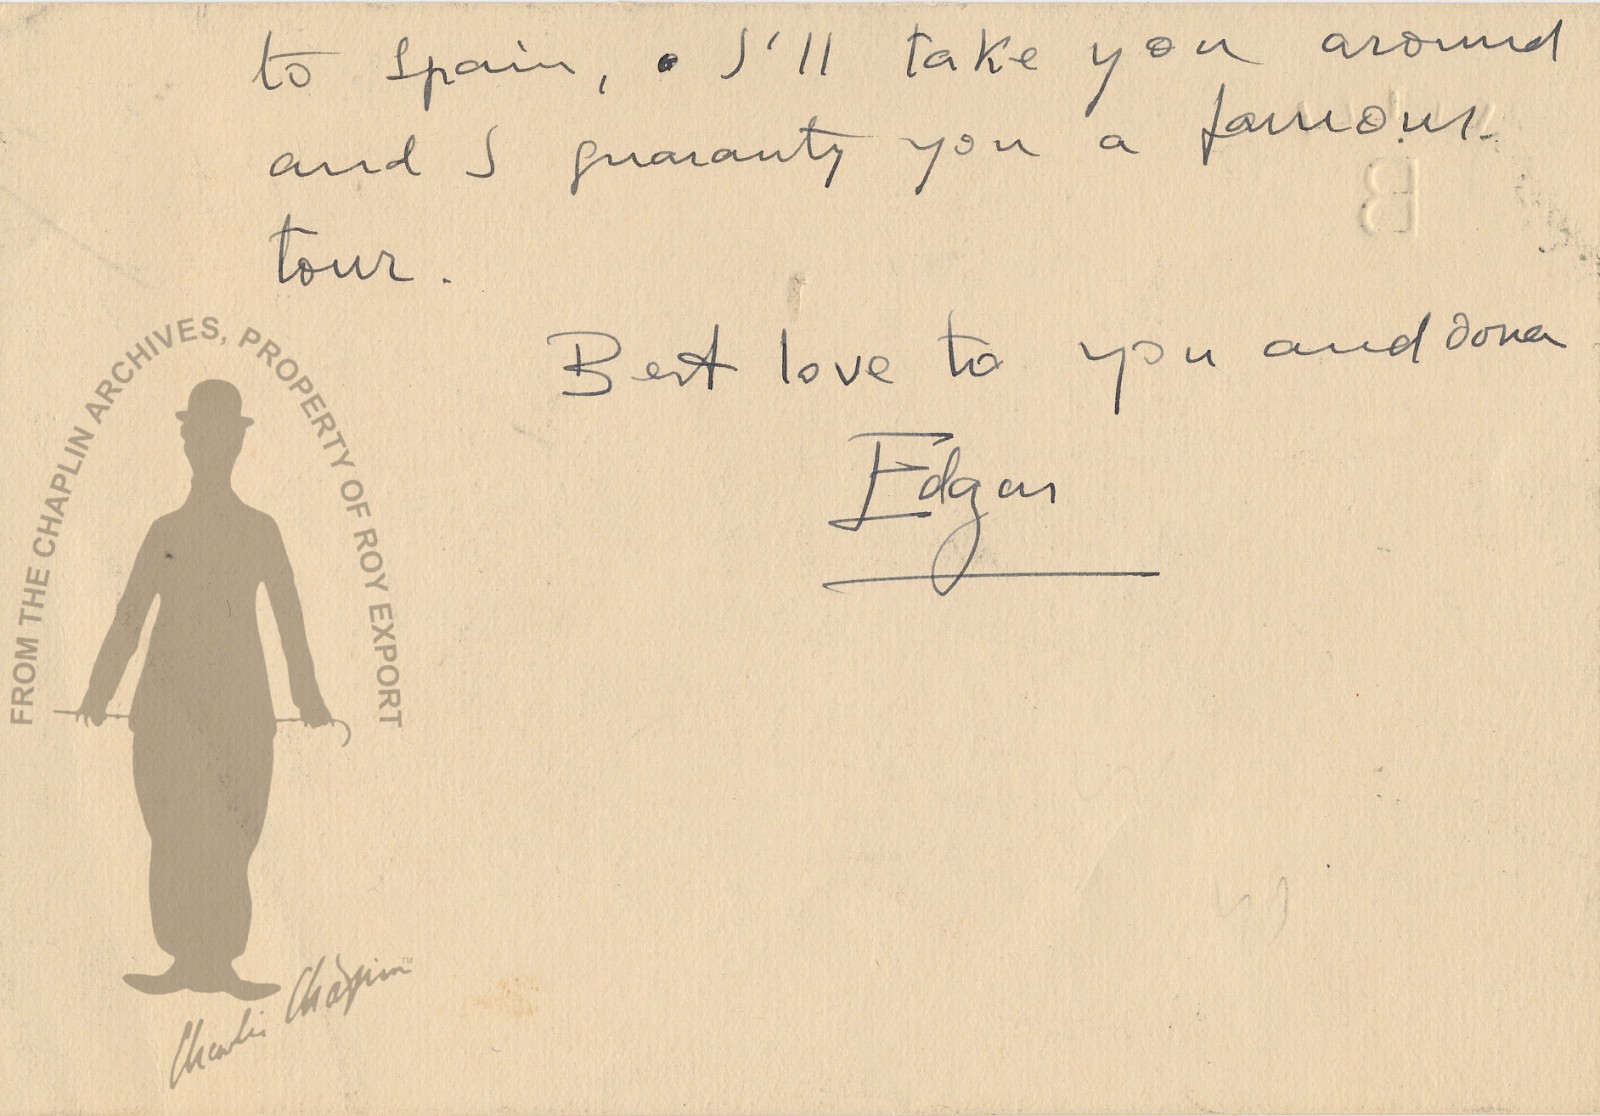 to Spain, I'll take you around
and I guaranty you a famous
tour.
Best love to you and Oona
Edgar
FROM THE CHAPLIN ARCHIVES, PROPERTY OF ROY EXPORT
Charlie Chaplin™
B